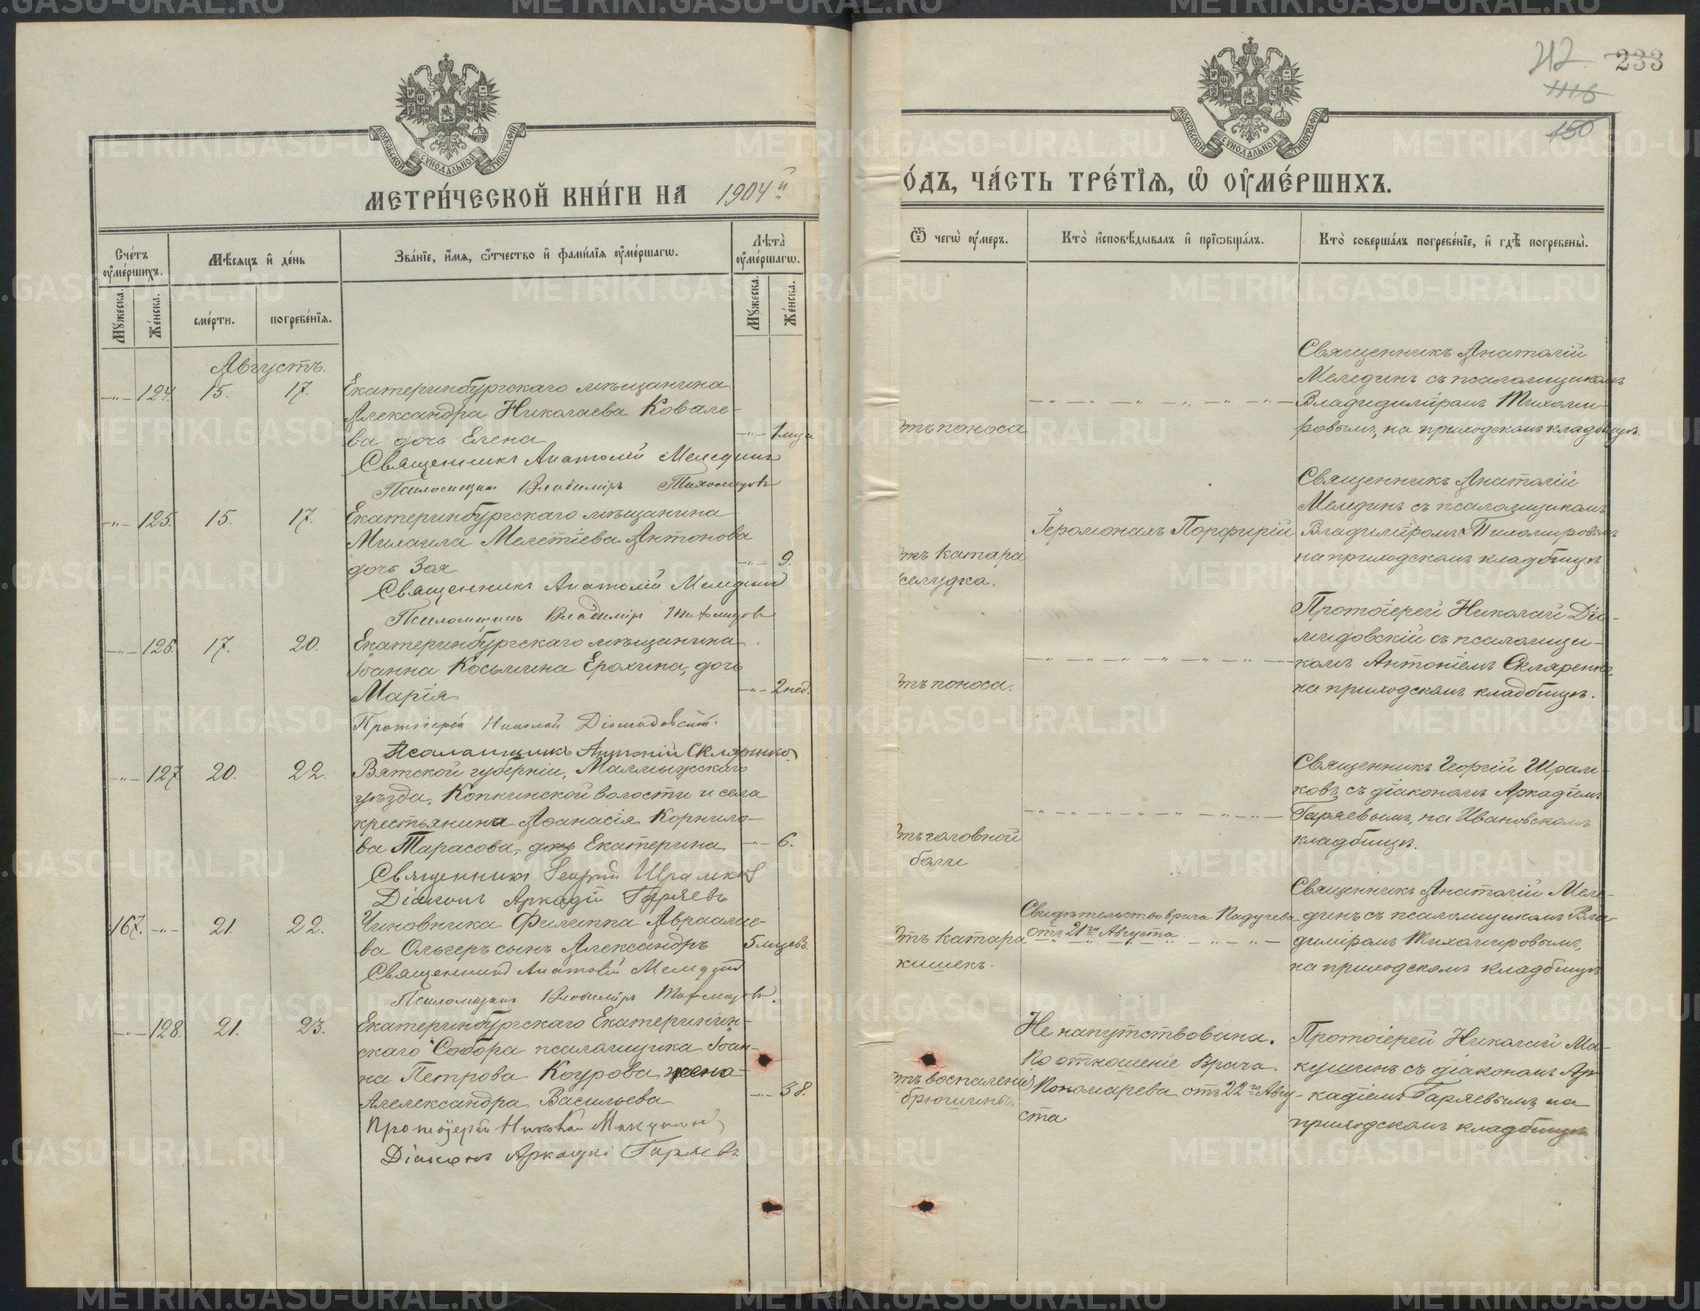 212. 233
1116
150
МЕТРИ́ЧЕСКОЙ КНИ́ГИ НА 1904й
ОДЪ, ЧА́СТЬ ТРЕ́ТІѦ, Ѡ҆ ОУ҆МЕ́РШИХЪ.
Сче́тъ оу҆ме́ршихъ.
Мѣ́сѧцъ и҆ де́нь
Зва́нїе, и҆́мѧ, ѻ҆́тчество и҆ фами́лїѧ оу҆ме́ршагѡ.
Лѣта̀ оу҆ме́ршагѡ.
Ѿ чегѡ̀ оу҆́меръ.
Кто̀ и҆сповѣ́дывалъ и҆ прїѡбща́лъ.
Кто̀ соверша́лъ погребе́нїе, и҆ гдѣ̀ погребены̀.
Мꙋ́жеска.
Же́нска.
сме́рти.
погребе́нїѧ.
Мꙋ́жеска.
Же́нска.
Августъ.
-"- 124. 15. 17. Екатеринбургскаго мѣщанина
Александра Николаева Ковале-
ва дочь Елена -"- 1 мца
Священникъ Анатолій Мелединъ
Псаломщикъ Владиміръ Тихомировъ
отъ поноса
Священникъ Анатолій
Мелединъ съ псаломщикомъ
Владидиміромъ Тихоми-
ровымъ, на приходскомъ кладбищѣ.
-"- 125. 15. 17. Екатеринбургскаго мѣщанина
Михаила Мелетіева Антонова
дочь Зоя -"- 9.
Священникъ Анатолій Мелединъ
Псаломщикъ Владиміръ Тихомировъ
отъ катара
желудка.
Іеромонахъ Порфирій
Священникъ Анатолій
Мелединъ съ псаломщикомъ
Владиміромъ Тихомировымъ
на приходскомъ кладбищѣ
-"- 126. 17. 20. Екатеринбургскаго мѣщанина
Іоанна Косьмина Ерохина, дочь
Марія -"- 2 нед.
Протоіерей Николай Діомидовскій.
Псаломщикъ Антоній Скляренко.
отъ поноса.
Протоіерей Николай Діо-
мидовскій съ псаломщи-
комъ Антоніемъ Скляренко,
на приходскомъ кладбищѣ.
-"- 127 20. 22. Вятской губерніи, Малмыжскаго
уѣзда, Копкинской волости и села
крестьянина Аѳанасія Корнило-
ва Тарасова, дочь Екатерина -"- 6.
Священникъ Георгій Шрамковъ
Діаконъ Аркадій Гаряевъ
отъ головной
боли
Священникъ Георгій Шрам-
ковъ съ діакономъ Аркадіемъ
Гаряевымъ, на Ивановскомъ
кладбищѣ.
167. -"- 21. 22. Чиновника Филиппа Авраамие-
ва Ольгеръ сынъ Александръ 5 мцевъ
Священникъ Анатолій Мелединъ
Псаломщикъ Владиміръ Тихомировъ.
отъ катара
кишекъ.
Свидѣтельство врача Падучева
отъ 21го Августа.
Священникъ Анатолій Меле-
динъ съ псаломщикомъ Вла-
диміромъ Тихомировымъ,
на приходскомъ кладбищѣ
-"- 128. 21. 23. Екатеринбургскаго Екатеринин-
скаго Собора псаломщика Іоан-
на Петрова Коурова, жена
Алелександра Васильева -"- 38.
Протоіерей Николай Макушинъ
Діаконъ Аркадій Гаряевъ
отъ воспаленія
брюшины.
Не напутствована.
По отношеніе Врача
Пономарева отъ 22го Авгу-
ста
Протоіерей Николай Ма-
кушинъ съ діакономъ Ар-
кадіемъ Гаряевымъ, на
приходскомъ кладбищѣ
METRIKI.GASO-URAL.RU